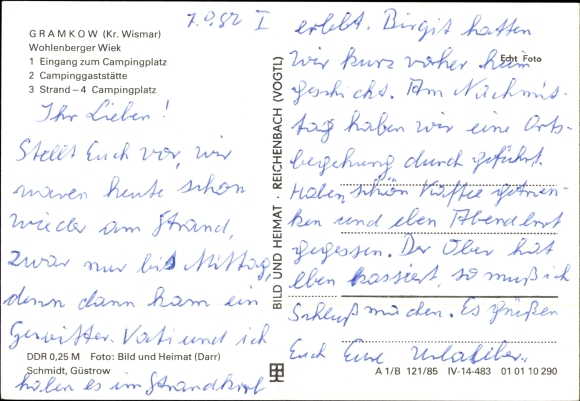 7.9.82 I
GRAMKOW (Kr. Wismar)
Wohlenberger Wiek
1 Eingang zum Campingplatz
2 Campinggaststätte
3 Strand – 4 Campingplatz
Ihr Lieben!
Stellt Euch vor, wir
waren heute schon
wieder am Strand,
zwar nur bis Mittag,
denn dann kam ein
Gewitter. Vati und ich
haben es im Strandkorb
DDR 0,25 M Foto: Bild und Heimat (Darr)
Schmidt, Güstrow
BILD UND HEIMAT · REICHENBACH (VOGTL)
erlebt. Birgit hatten
wir kurz vorher heim
Echt Foto
geschickt. Am Nachmit-
tag haben wir eine Orts-
begehung durchgeführt.
Haben schön Kaffee getrun-
ken und eben Abendbrot
gegessen. Der Ober hat
eben kassiert, so muß ich
Schluß machen. Es grüßen
Euch Eure Urlauber.
A 1/B 121/85 IV-14-483 01 01 10 290